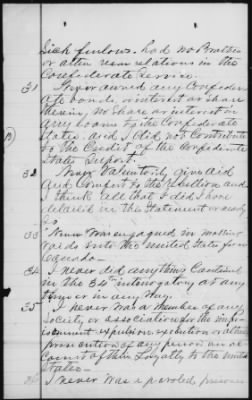 Sick furlows. had no Brothers
or other near relations in the
Confederate Service.
31 I never owned any Confeder-
ate bonds or interest or share
therein, no share or interest in
any loans to the Confederate
States. And I did not Contribute
to the Credit of the Confederate
States Support.
32 Never Voluntarily give Aid
And Comfort to the Rebellion and
I think all that I did I have
detailed in the Statement or
33 Never was engaged in making
raids into the United States from
Canada
34 I never did anything Contained
in the 34th interrogatory at any
time or in any Way.
35 I never was a member of any
Society, or association for the impris-
onment expulsion execution or other
persecution of any person on ac-
count of their Loyalty to the United
States
36 I never was a paroled prisoner